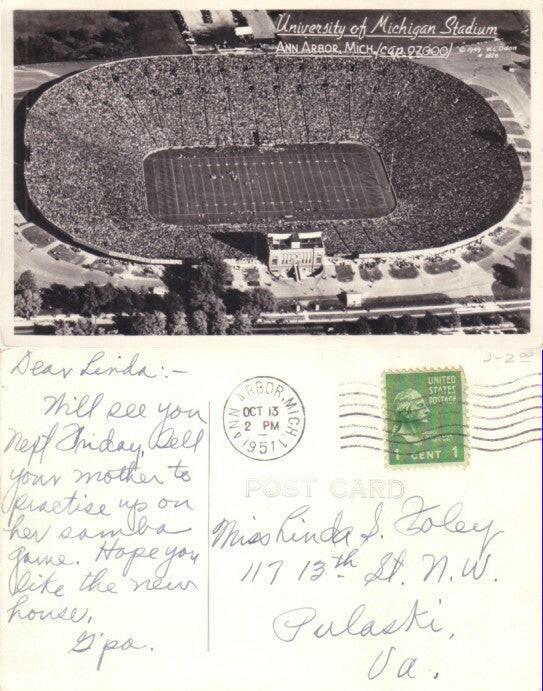 University of Michigan Stadium
Ann Arbor, Mich. (cap. 97,000) © 1949 W.C. Odon
Dear Linda:-
Will see you
next Friday. Tell
your mother to
practise up on
her samba
game. Hope you
like the new
house.
G'pa.
ANN ARBOR, MICH.
OCT 13
2 PM
1951
UNITED
STATES
POSTAGE
1 CENT 1
POST CARD
Miss Linda S. Foley
117 13th St. N.W.
Pulaski,
Va.